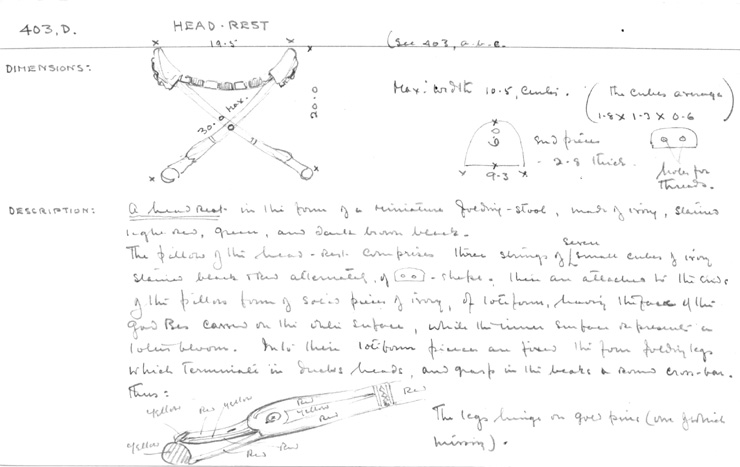 403, D.
HEAD-REST
(See 403, a.b.c.
19.5
DIMENSIONS:
Max: width 10.5, centi.
(The cubes average
1.8 x 1.3 x 0.6)
20.0
30.0 MAX.
end pieces
2.8 thick.
9.3
holes for
threads.
DESCRIPTION:
A head rest in the form of a miniature folding-stool, made of ivory, stained
light red, green, and dark brown black.
The pillow of the head-rest comprises three strings of seven small cubes of ivory
stained black & red alternately, of shape. These are attached to the ends
of the pillow form of solid pieces of ivory, of lotiform, having the face of the
God Bes carved on the outer surface, while the inner surface represents a
lotus bloom. Into these lotiform pieces are fixed the four folding legs
which terminate in ducks heads, and grasp in the beaks a round cross-bar.
Thus:
yellow
Red
yellow
Red
yellow
Red
Red
yellow
Red
Red
The legs hinge on gold pins (one of which
missing).